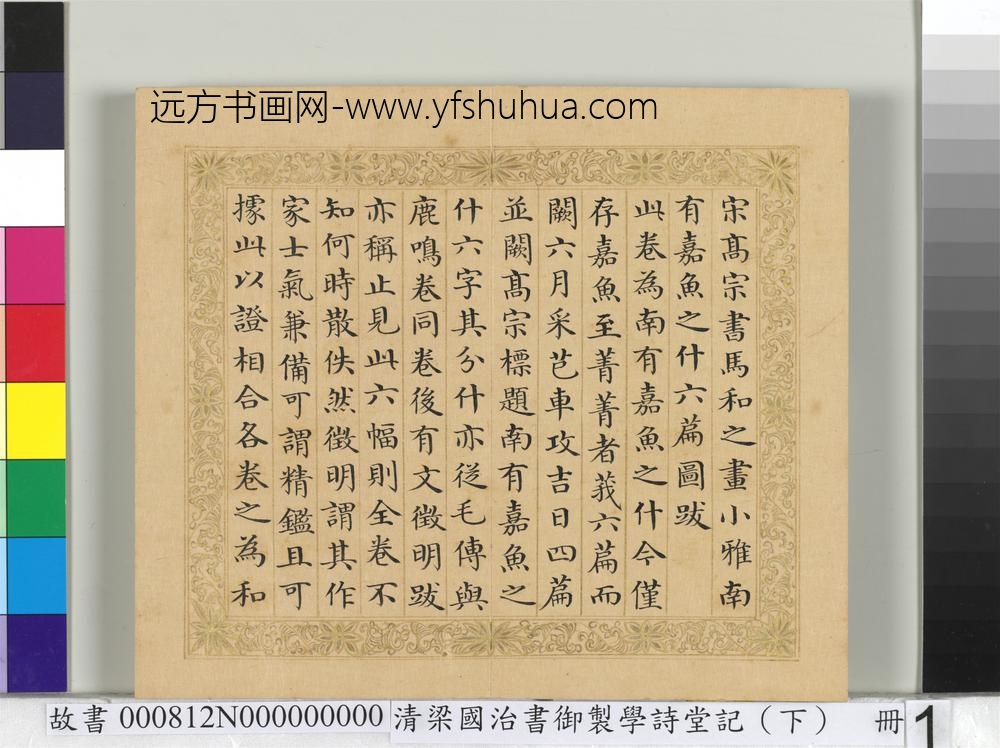 远方书画网-www.yfshuhua.com
宋髙宗書馬和之畫小雅南
有嘉魚之什六篇圖跋
此卷為南有嘉魚之什今僅
存嘉魚至菁菁者莪六篇而
闕六月采芑車攻吉日四篇
並闕髙宗標題南有嘉魚之
什六字其分什亦從毛傳與
鹿鳴卷同卷後有文徵明跋
亦稱止見此六幅則全卷不
知何時散佚然徵明謂其作
家士氣兼備可謂精鑑且可
據此以證相合各卷之為和
故書 000812N000000000 清梁國治書御製學詩堂記（下） 冊 1